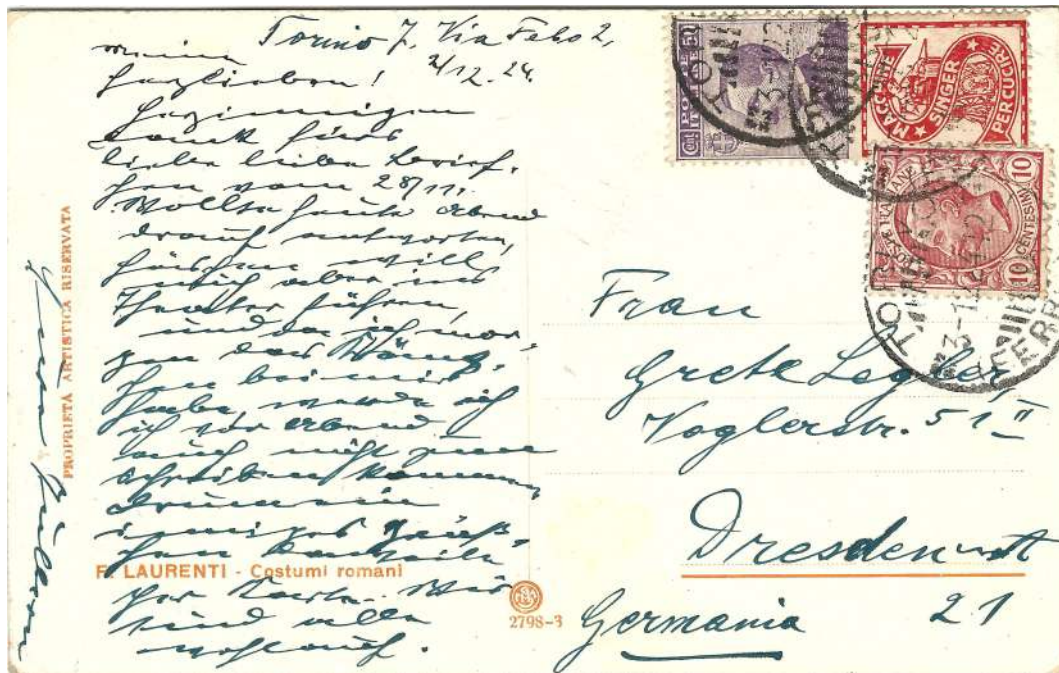 Torino 7, Via Febo 2,
2/12.24.
meine
herzlieben!
herzinnigen
Dank fürs
liebe liebe Brief-
chen vom 28/11.
Wollte heute Abend
drauf antworten,
will
mich aber ins
Theater führen,
und da ich mor-
gen das Kränz-
chen bei mir
habe, werde ich
ich vor Abend
auch nicht zum
schreiben kommen,
drum ein
inniges Grüß-
chen
per Karte. Wir
sind alle
wohlauf.
PROPRIETÀ ARTISTICA RISERVATA
F. LAURENTI - Costumi romani
2798-3
POSTE ITALIANE
CENT. 50
MACCHINE
SINGER
PER CUCIRE
POSTE ITALIANE
10 CENTESIMI 10
TORINO
FERROVIA
Frau
Grete Legler
Voglerstr. 51 II
Dresden-A
21
Germania